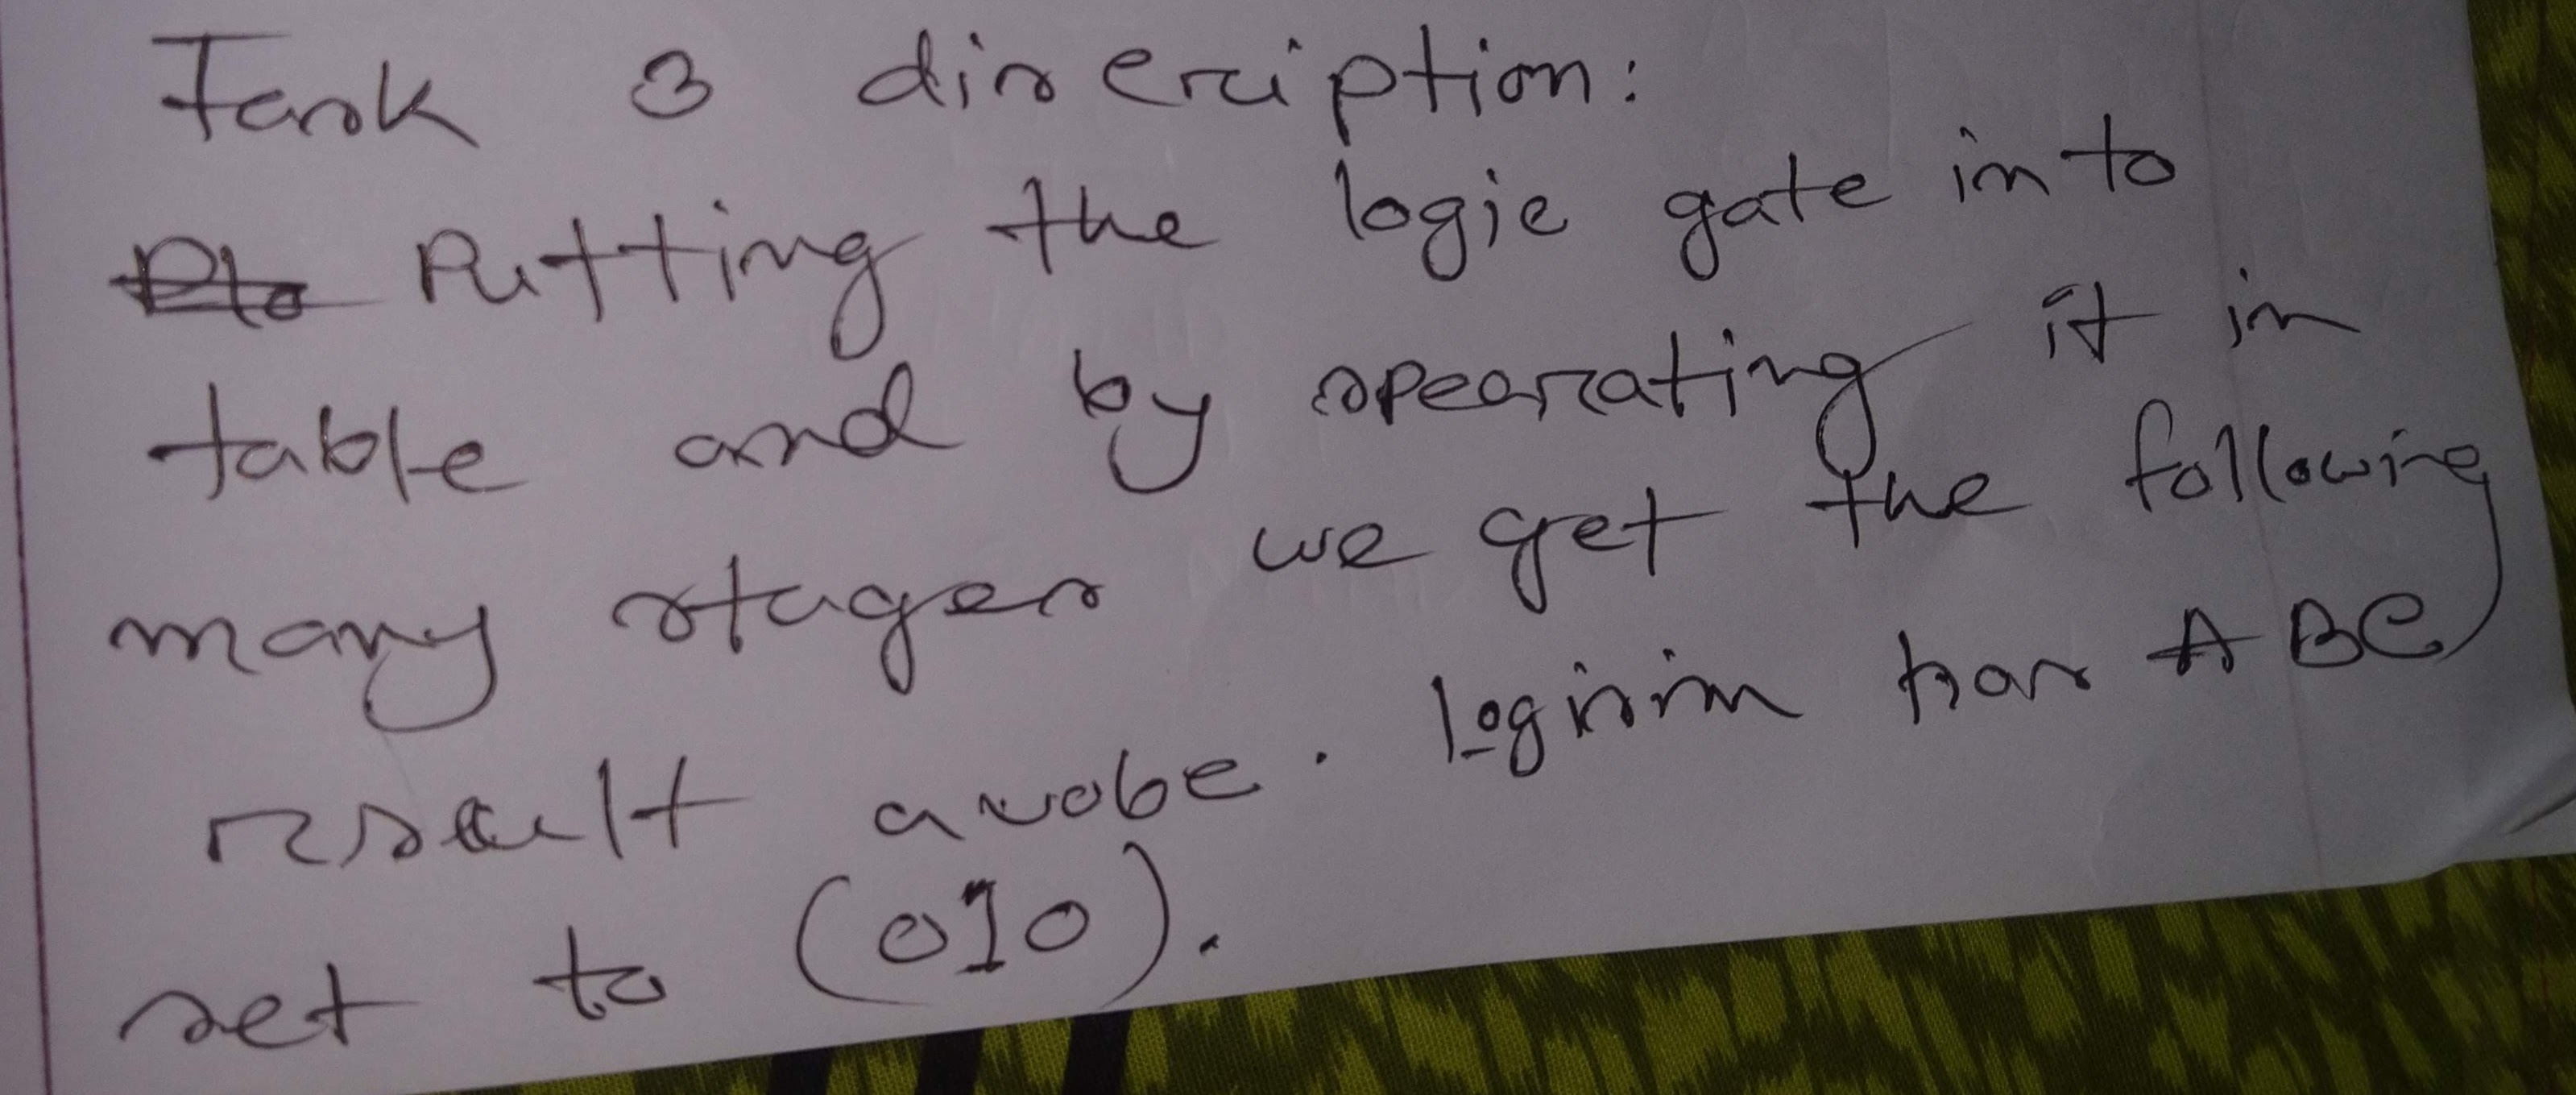 Task 3 discription:
Putting the logic gate in to
table and by spearating it in
many stages we get the following
result avobe. logisim has ABC
set to (010).